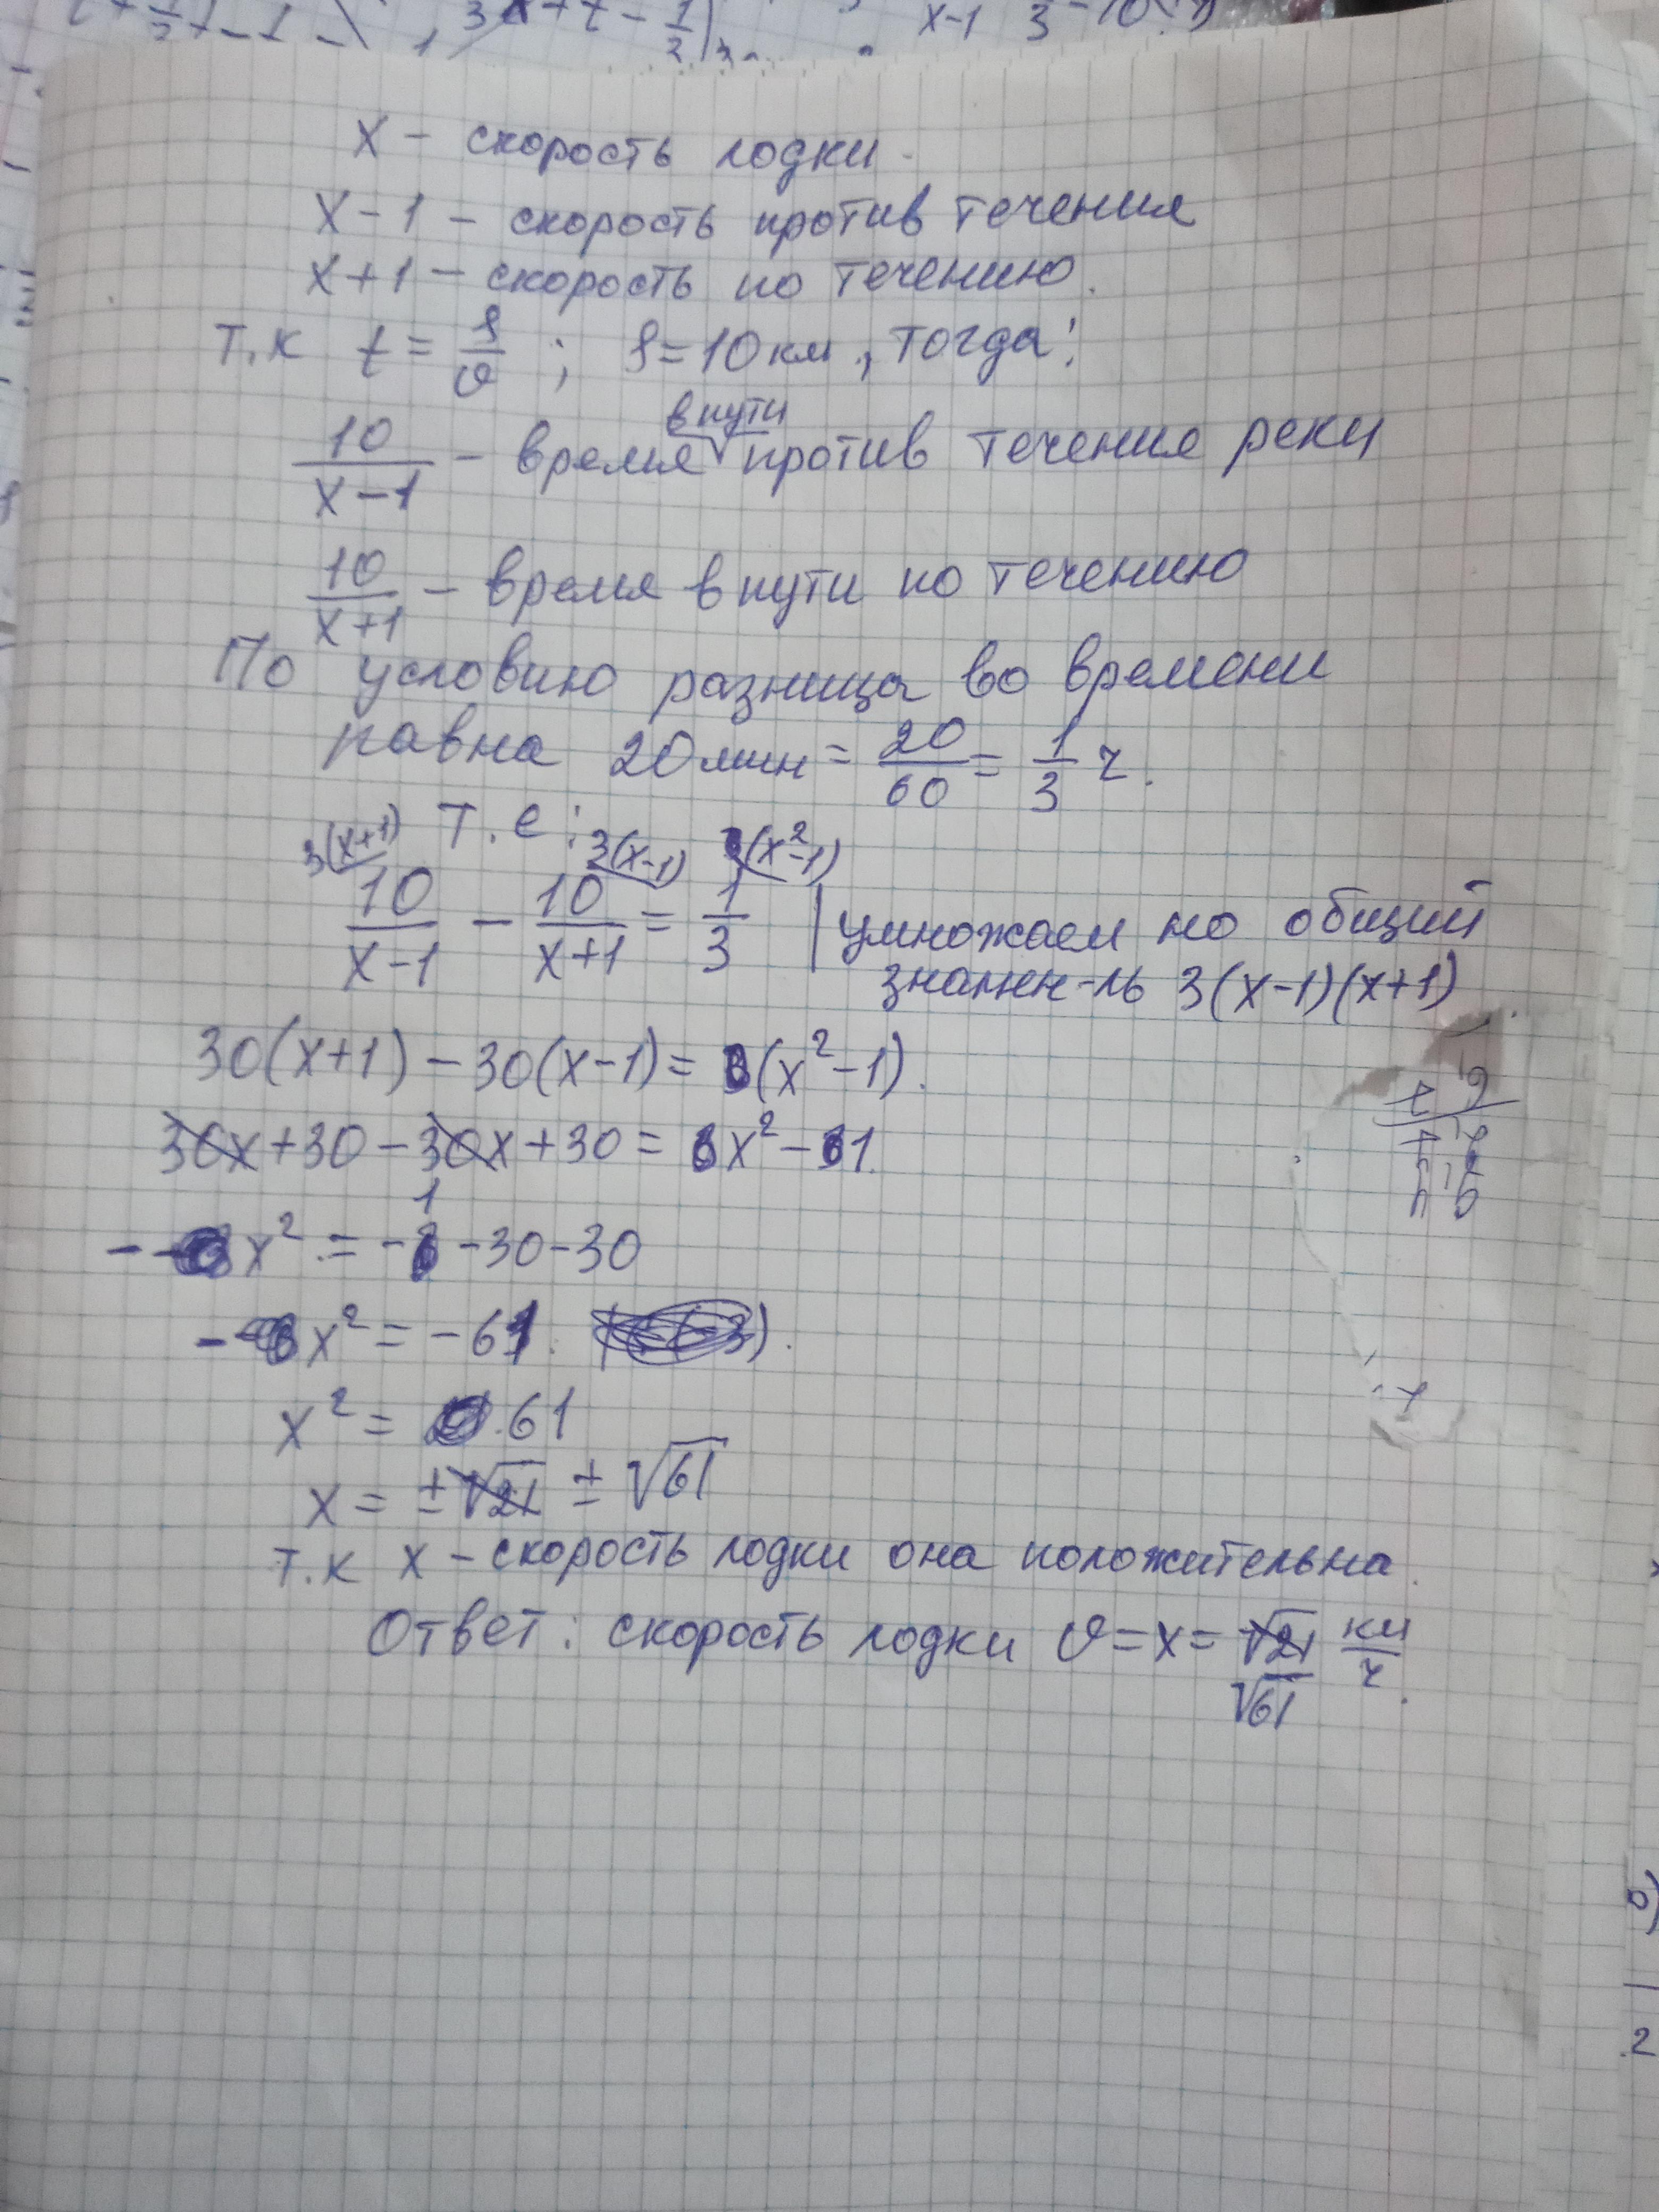 x-1 3 -10
x - скорость лодки
x-1 - скорость против течения
x+1 - скорость по течению.
т.к t = S/υ ; S=10 км, тогда:
10/(x-1) - время в пути против течения реки
10/(x+1) - время в пути по течению
По условию разница во времени
равна 20 мин = 20/60 = 1/3 ч.
т.е:
3(x+1) 3(x-1) (x²-1)
10/(x-1) - 10/(x+1) = 1/3 | умножаем на общий
знамен-ль 3(x-1)(x+1)
30(x+1) - 30(x-1) = (x²-1).
30x+30-30x+30 = x²-1
- x² = -1 -30-30
- x² = -61.
x² = 61
x = ±√21 ± √61
т.к x - скорость лодки она положительна.
Ответ: скорость лодки υ=x= √21 км/ч.
√61
2